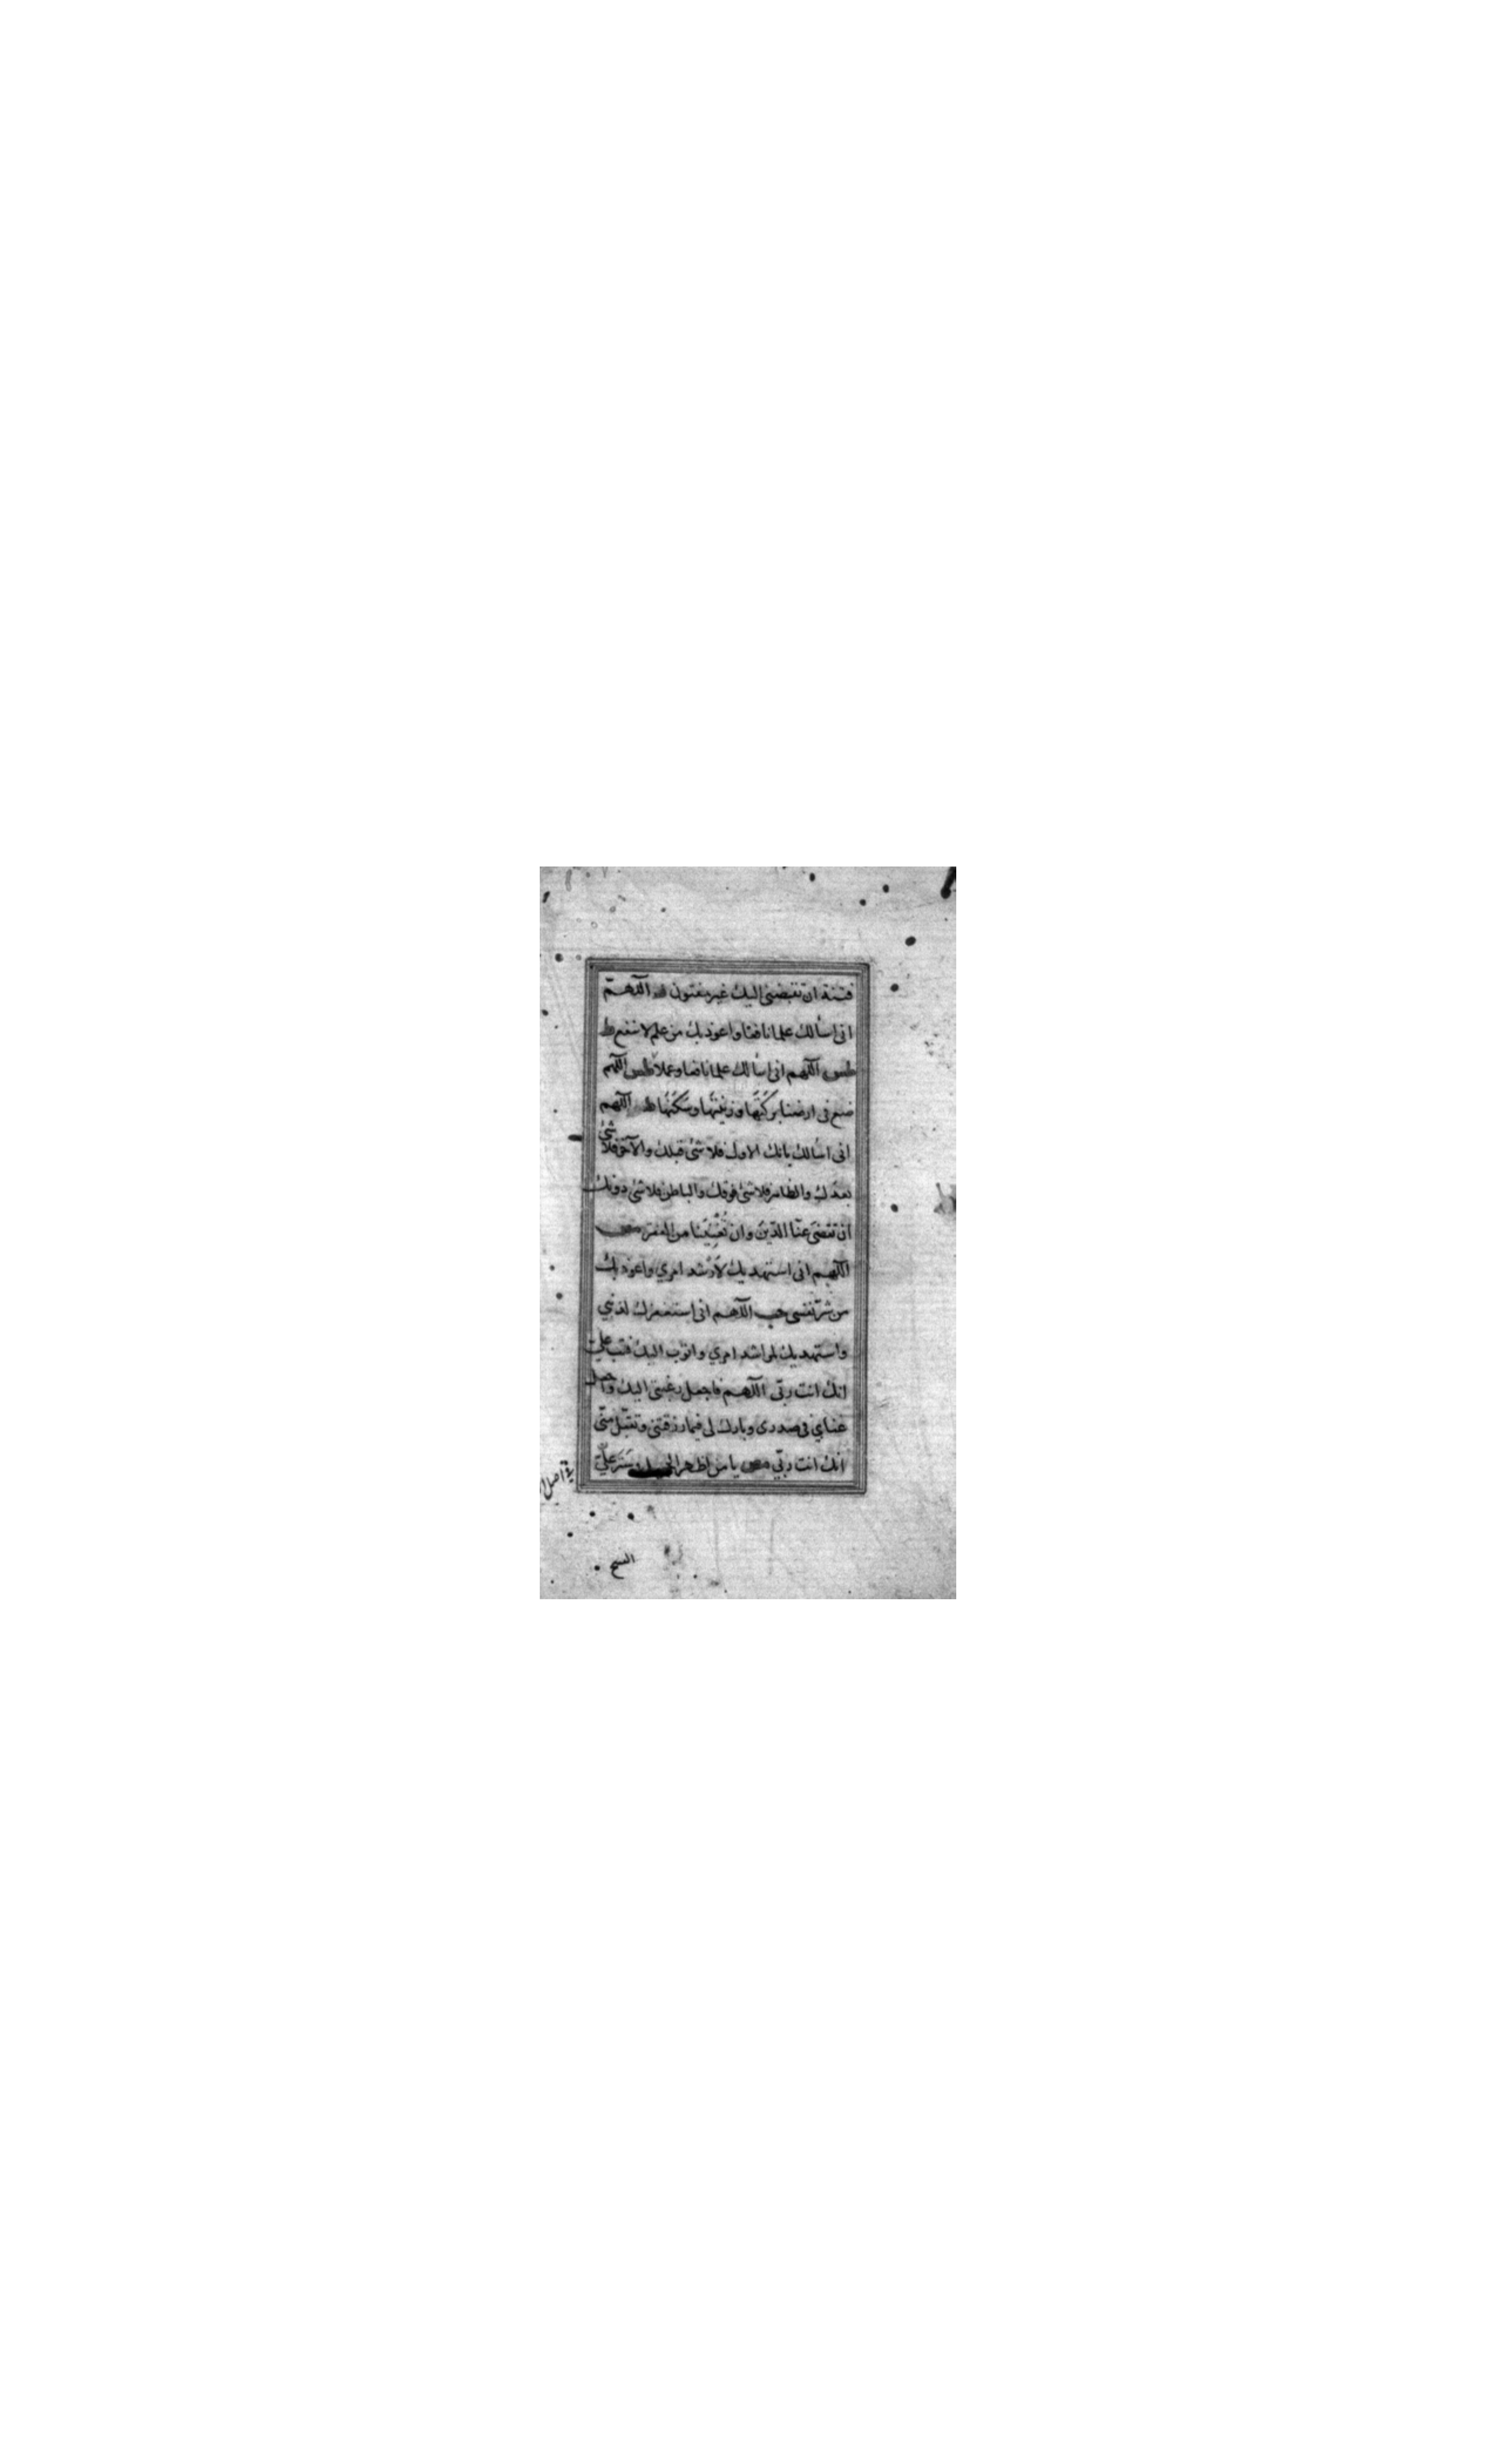 فتنة ان تقبضنى اليك غير مفتون ط اللهم
انى اسألك علما نافعا واعوذ بك من علم لا ينفع ط
طس اللهم انى اسألك علما نافعا وعملا طس اللهم
ضع فى ارضنا بركتها وزينتها وسكنها ط اللهم
انى اسألك بانك الاول فلا شئ قبلك والآخر فلا شئ
بعدك والظاهر فلا شئ فوقك والباطن فلا شئ دونك
ان تقضى عنا الدين وان تغنينا من الفقر مص
اللهم انى استهديك لارشد امري واعوذ بك
من شر نفسى حب اللهم انى استغفرك لذنبي
واستهديك لمراشد امري واتوب اليك فتب علي
انك انت ربي اللهم فاجعل رغبتى اليك واجعل
غناي فى صدرى وبارك لى فيما رزقتنى وتقبل منى
انك انت ربي مص يا من اظهر الجميل وستر علي
في اصل